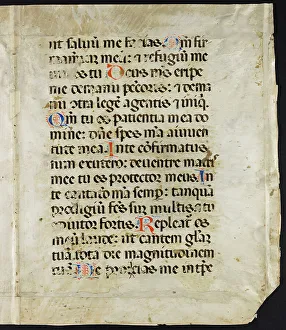 ut salvu me facias. Qm fir
mamer meu: & refugiu me
um es tu Deus ms eripe
me demanu pcctoris: & dema
nu ctra lege agetis & iniq.
Qm tu es patientia mea do
mine: dne spes ma aiuven
tute mea. In te cofirmatus
sum exutero: deventre matris
mee tu es protector meus. In
te cantatio ma semp: tanqua
prodigiu fcs sur multis: & tu
adiutor fortis. Repleat os
meu laude: ut cantem glaz
tua tota die magnitudinem
tua. Ne proicias me intpe